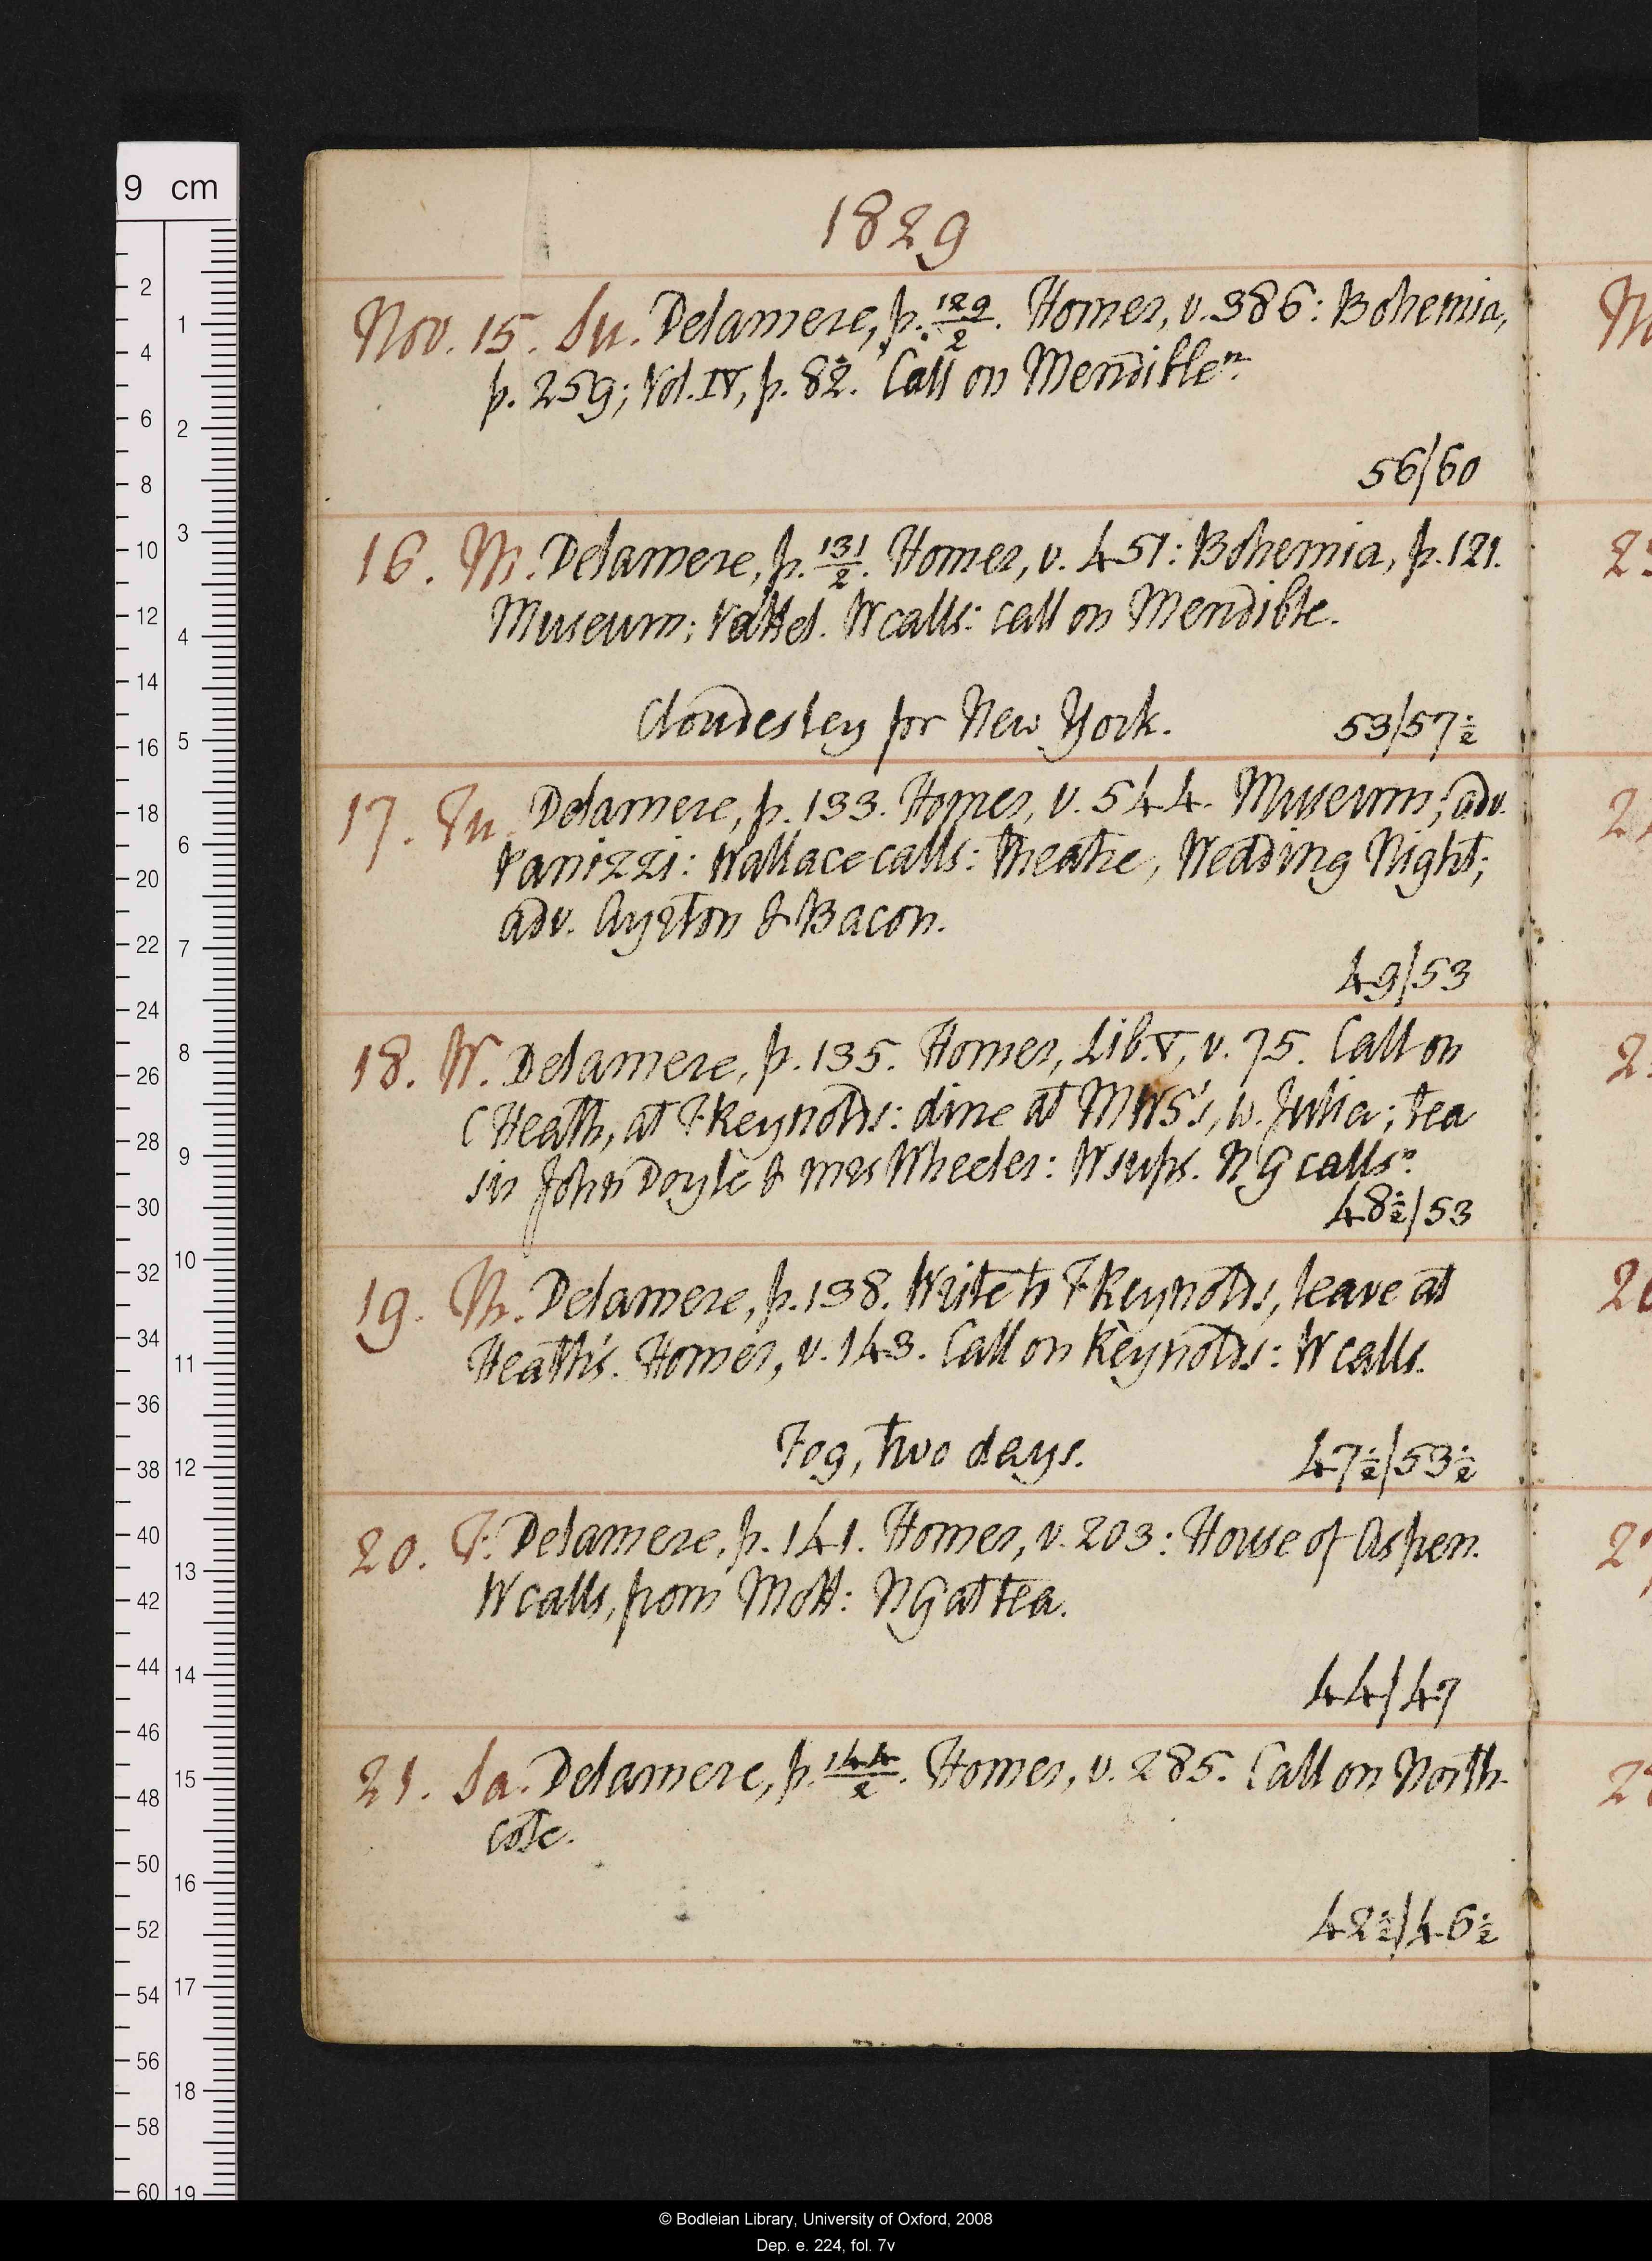 1829
Nov. 15. Su. Delamere, p. 129/2. Homer, v. 386: Bohemia,
p. 259; Vol. IV, p. 82. Call on Mendible n.
56/60
16. M. Delamere, p. 131/2. Homer, v. 451: Bohemia, p. 121.
Museum; Vattel. W calls: call on Mendible.
Cloudesley for New York. 53/57½
17. Tu. Delamere, p. 133. Homer, v. 544. Museum; adv.
Panizzi: Wallace calls: theatre, Wedding Night;
adv. Ayrton & Bacon.
49/53
18. W. Delamere, p. 135. Homer, Lib. V, v. 75. Call on
C Heath, at F Reynolds: dine at MWS's, w. Julia; tea
sin John Doyle & mrs Wheeler: W sups. N G calls n.
48½/53
19. Th. Delamere, p. 138. Write to F Reynolds, leave at
Heath's. Homer, v. 143. Call on Reynolds: W calls.
Fog, two days. 47½/53½
20. F. Delamere, p. 141. Homer, v. 203: House of Aspen.
W calls, from Mott: N G at tea.
44/47
21. Sa. Delamere, p. 144/2. Homer, v. 285. Call on North-
cote.
42½/46½
9 cm
2
4
6
8
10
12
14
16
18
20
22
24
26
28
30
32
34
36
38
40
42
44
46
48
50
52
54
56
58
60
1
2
3
4
5
6
7
8
9
10
11
12
13
14
15
16
17
18
19
© Bodleian Library, University of Oxford, 2008
Dep. e. 224, fol. 7v